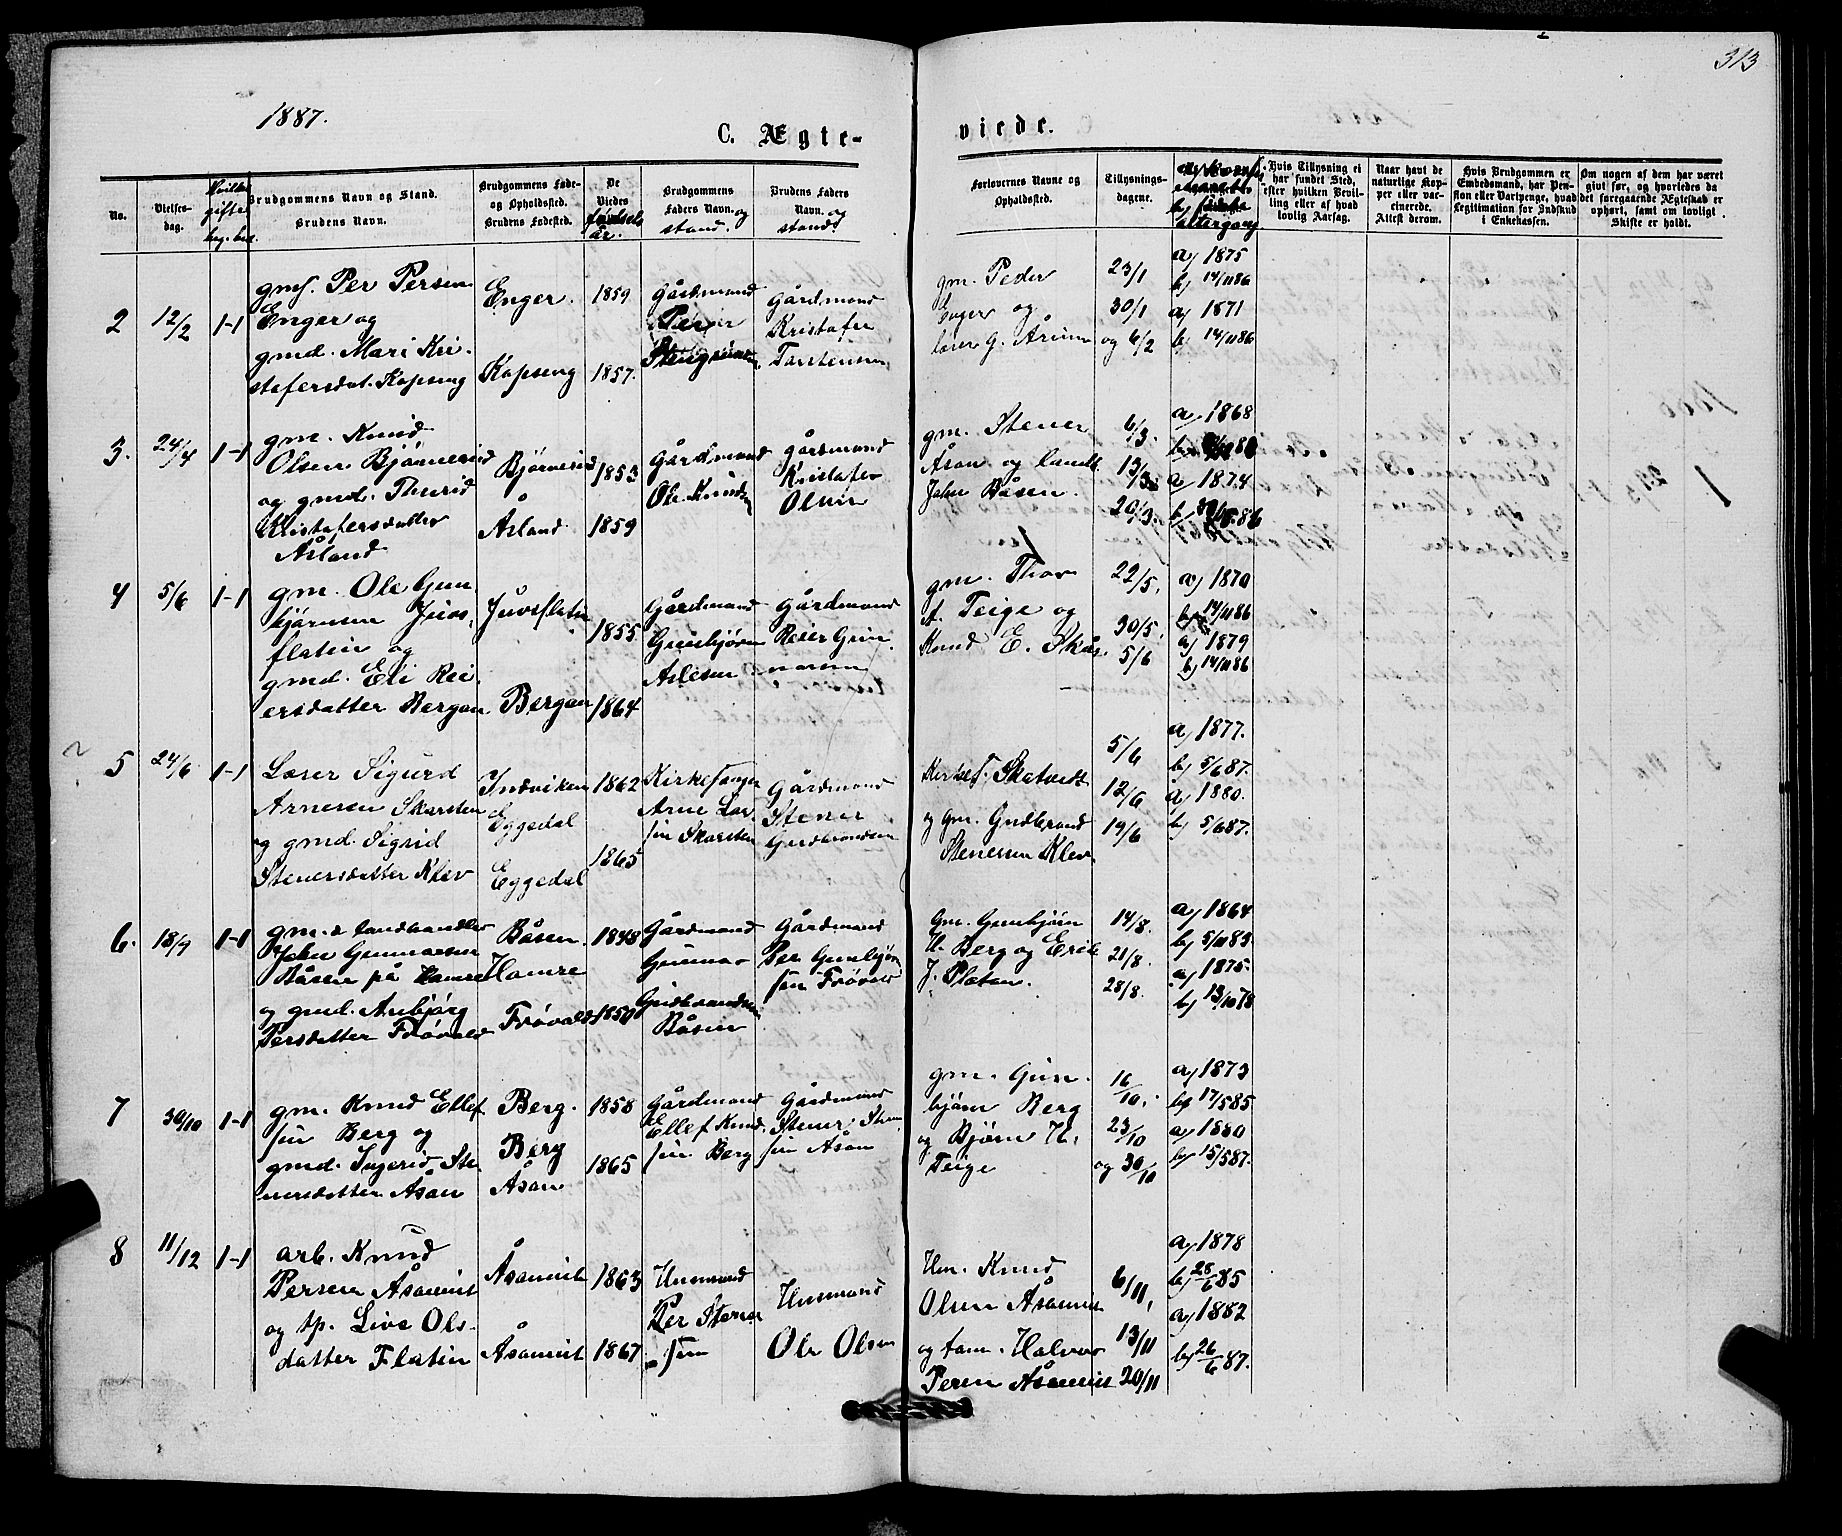 313
1887.
C. Ægte-
viede.
No.
Vielses-
dag.
Brudgommens Navn og Stand.
Brudens Navn.
Brudgommens Føde-
og Opholdssted.
Brudens Fødested.
De
Viedes
fødsels
år.
Brudgommens
Faders Navn. og
stand.
Brudens Faders
Navn. og
stand.
Forlovernes Navne og
Opholdssted.
Tillysnings-
dagene.
altergang
Hvis Tillysning ei
har fundet Sted,
efter hvilken Bevil-
ling eller af hvad
lovlig Aarsag.
Naar havt de
naturlige Kop-
per eller vac-
cinerede.
Attest derom.
Hvis Brudgommen er
Embedsmand, har Pen-
sion eller Vartpenge, hvad
Legitimation for Indskud
i Enkekassen.
Om nogen af dem har været
givt før, og hvorledes da
det foregaaende Ægteskab er
ophørt, samt om lovligt
Skifte er holdt.
2
12/2
1-1
gmf. Per Persen
Enger og
gmd. Mari Kri-
stafersdat. Kopseng
Enger.
Kopseng
1859
1857.
Gårdmand
Gårdmand
Kristafer
Torstensen
gm. Peder
Enger og
23/1
30/1
og 6/2
a) 1875
b) 14/11 86
a) 1871
b) 14/11 86
3.
24/4
1-1
gm. Knud
Olsen Bjørnerud
og gmd. Thurid
Kristafersdatter
Åsland
Bjørnerud
Åsland
1853
1859
Gårdmand
Ole Knudsen
Gårdmand
Kristafer
Olsen
gm. Stener
Åsan og landh.
John Båsen.
6/3.
13/3
20/3.
a) 1868
a) 1874
4
5/6
1-1
gm. Ole Gun
bjørnsen Juvs,
flatin og
gmd. Eli Rei-
ersdatter Bergan
Juvsflatin
Bergan
1855
1864
Gårdmand
Gunbjørn
Aslesen
Gårdmand
Reier Gun
narsen
gm. Thov
A. Teige og
Knud E. Skås
22/5,
30/5,
5/6
a) 1870
b) 14/11 86
a) 1879
b) 14/11 86
5
24/6
1-1
Lærer Sigurd
Arnesen Skarsten
og gmd. Sigrid
Stenersdatter Klev
Indviken
Eggedal
Eggedal
1862
1865
Kirkesanger
Arne Lar
sen Skarsten
Gårdmand
Stener
Gudbrandsen
Kirkes. Skatvedt
og gm. Gudbrand
Stenersen Klev.
5/6
12/6
19/6
a) 1877.
b) 5/6 87.
a) 1880.
b) 5/6 87.
6.
18/9
1-1
gm. & landhandler
John Gunnarsen
Båsen på Hamre
og gmd. Anbjørg
Persdatter Frøvold
Båsen
Hamre
Frøvold
1848
1850
Gårdmand
Gunnar
Gudbrandsen
Båsen
Gårdmand
Per Gunbjørn
sen Frøvold
Gm. Gunbjørn
H. Berg og Erik
J. Platen.
14/8.
21/8.
28/8.
a) 1864
b) 5/11 83.
a) 1875.
b) 13/10 78
7
30/10
1-1
gm. Knud Ellef
sen Berg og
gmd. Ingerid Ste
nersdatter Åsan
Berg.
Berg
Åsan
1858
1865
Gårdmand
Ellef Knud
sen Berg
Gårdmand
Stener Sten
sen Åsan
gm. Gun
bjørn Berg
og Bjørn H.
Teige
16/10.
23/10
og 30/10
a) 1873
b) 17/5 85
a) 1880
b) 15/5 87.
8
11/12
1-1
arb. Knud
Persen Åsaneiet
og tp. Live Ols-
datter Flatin
Åsaneiet
Åsaneiet
1863
1867
Husmand
Per Stener
sen
Husmand
Ole Olsen
Hm. Knud
Olsen Åsaneiet
og tøm. Halvor
Persen Åsaneiet
6/11,
13/11
20/11
a) 1878
b) 28/6 85
a) 1882
b) 26/6 87.